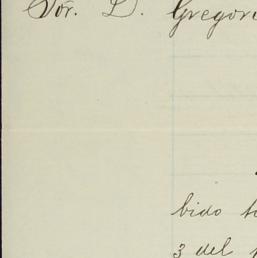 Sor. D. Gregori
bido
3 del